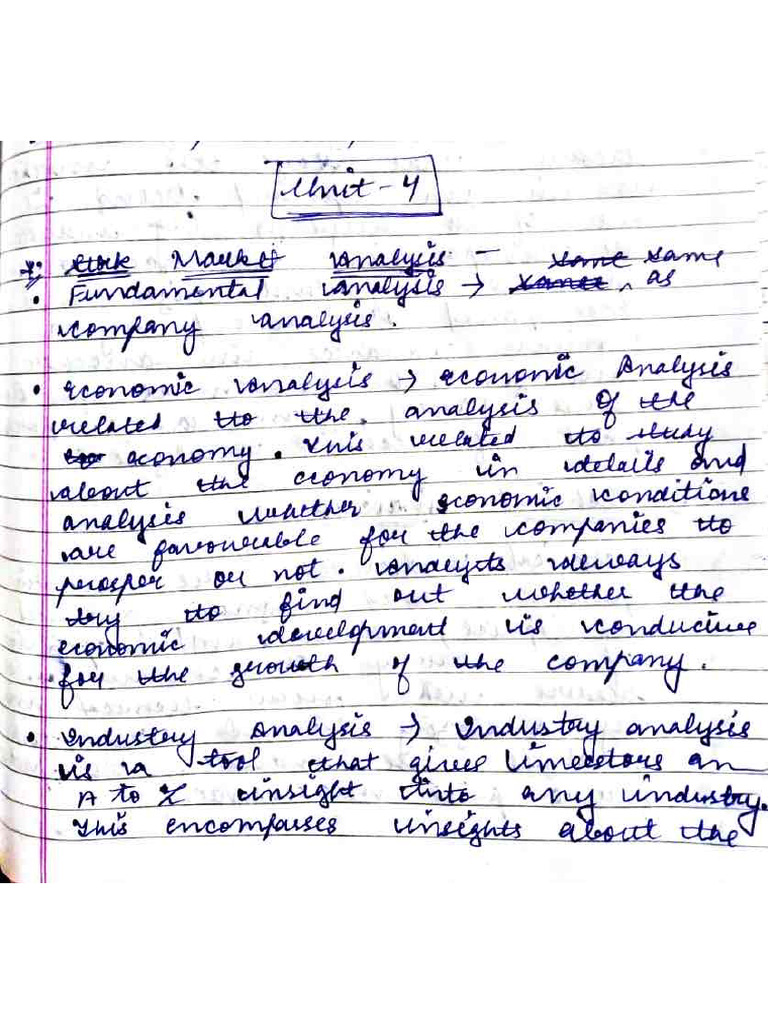 Unit - 4
Stock Market Analysis - same
• Fundamental analysis → as
company analysis.
• Economic analysis → economic Analysis
related to the. analysis of the
economy. This related to study
about the economy in details and
analysis whether economic conditions
are favourable for the companies to
prosper or not. analysts always
try to find out whether the
economic development is conducive
for the growth of the company.
• Industry analysis → Industry analysis
is a tool that gives investors an
A to Z insight into any industry.
This encompasses insights about the